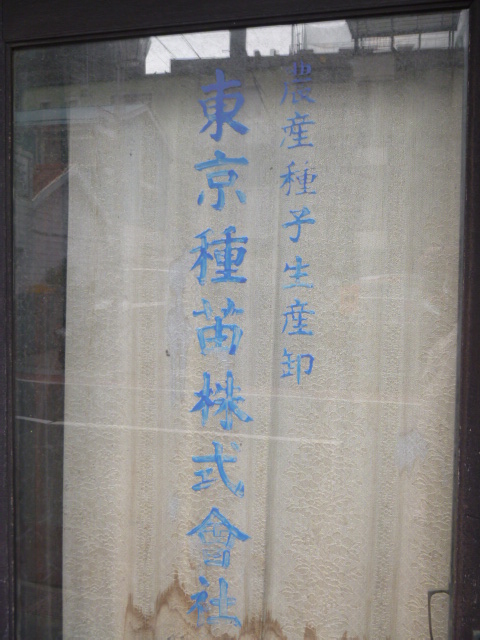 農産種子生産卸
東京種苗株式會社